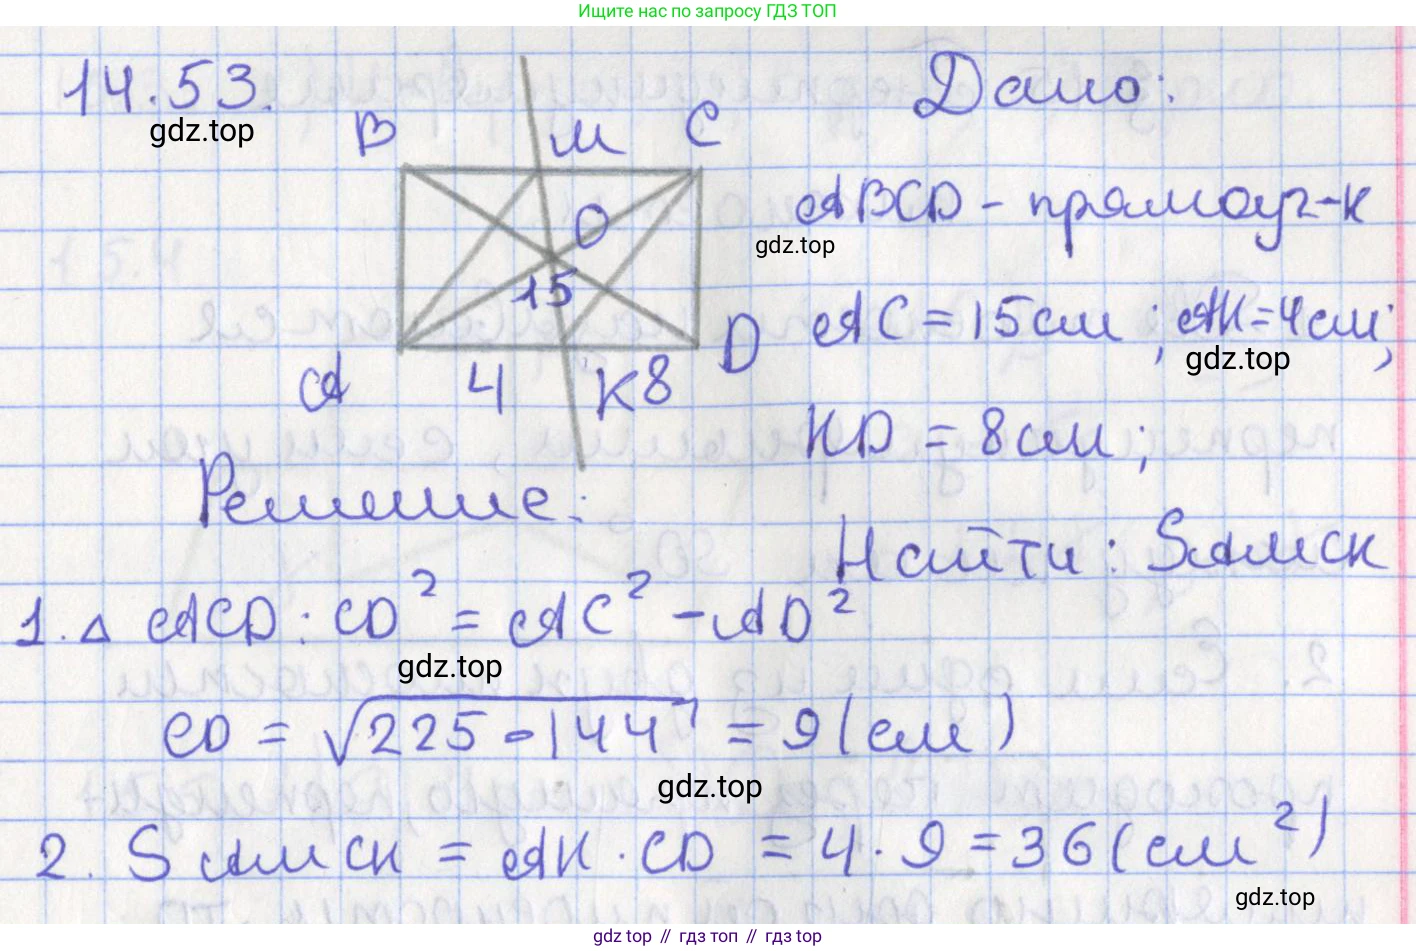 Ищите нас по запросу ГДЗ ТОП
14.53.
gdz.top
Дано:
B M C
ABCD - прямоуг-к
O
gdz.top
15
AC = 15см ; AK = 4см;
D
gdz.top
A 4 K 8
KD = 8см;
Решение:
Найти: SAMCK
1. △ ACD: CD² = AC² - AD²
gdz.top
CD = √225 - 144 = 9 (см)
gdz.top
2. SAMCK = AK · CD = 4 · 9 = 36 (см²)
gdz.top
gdz top // гдз топ // gdz top